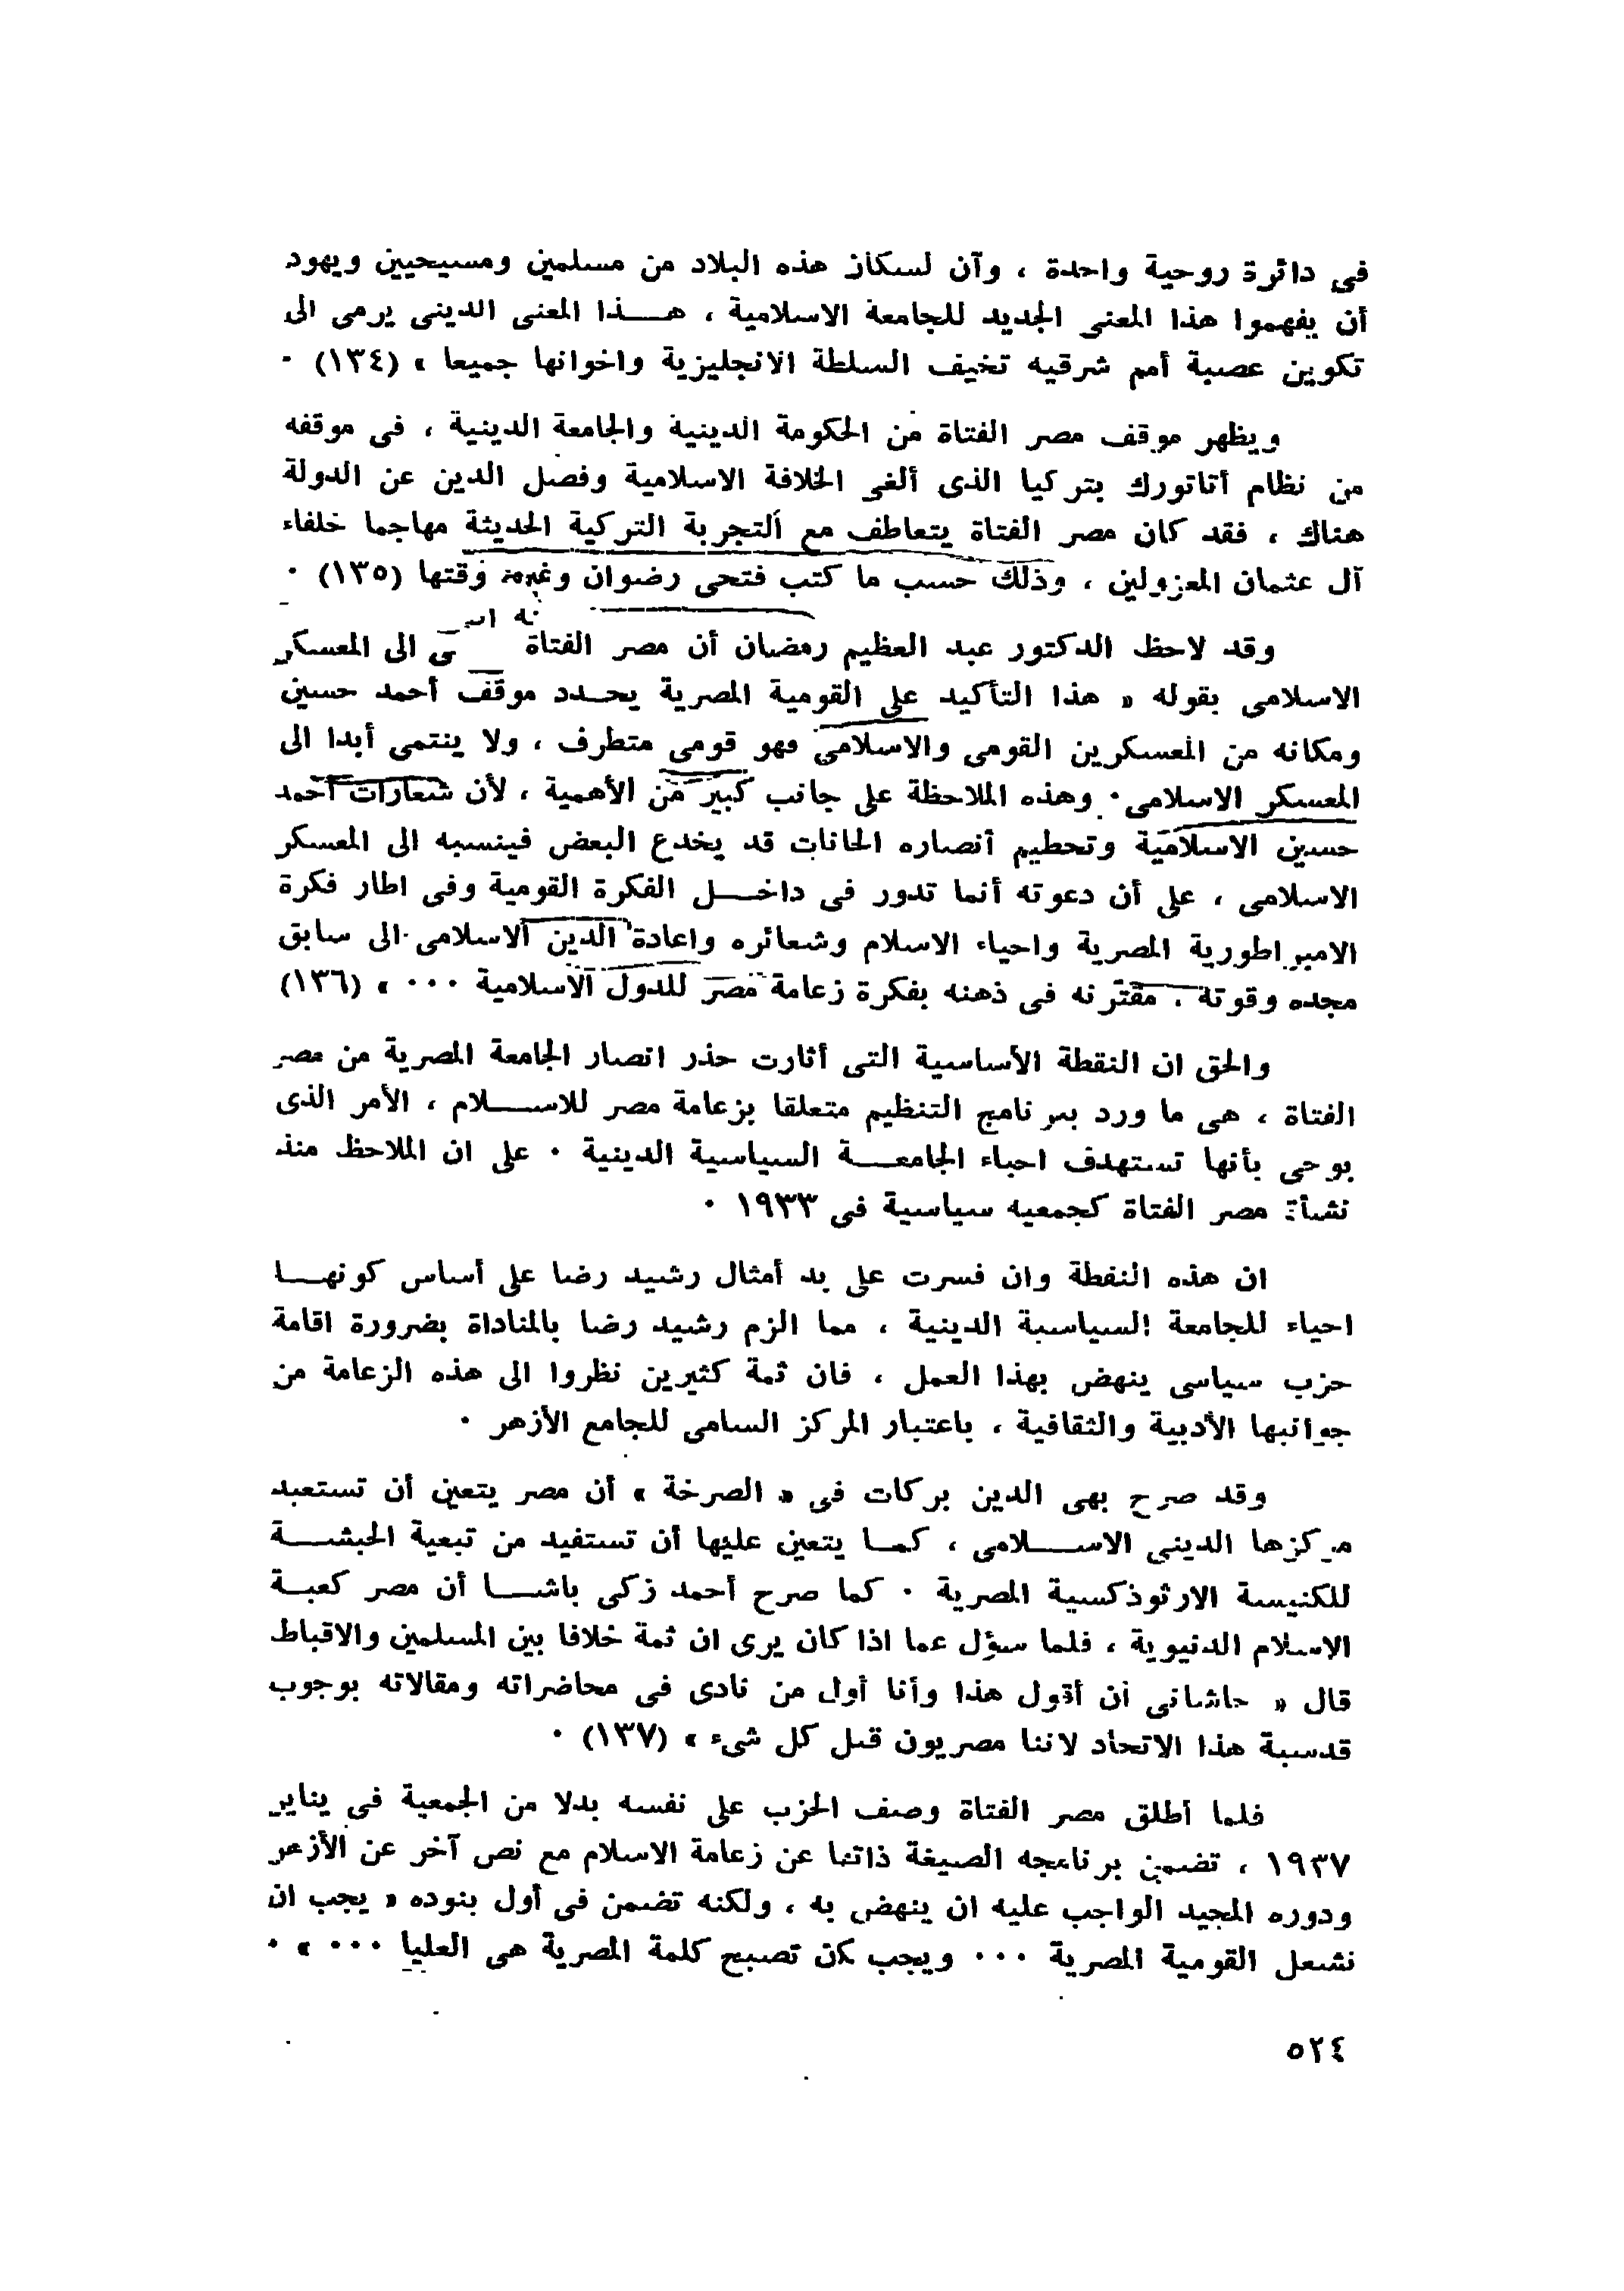 فى دائرة روحية واحدة ، وأن لسكان هذه البلاد من مسلمين ومسيحيين ويهود
أن يفهموا هذا المعنى الجديد للجامعة الاسلامية ، هـــذا المعنى الدينى يرمى الى
تكوين عصبة أمم شرقيه تخيف السلطة الانجليزية واخوانها جميعا » (١٣٤) ٠
ويظهر موقف مصر الفتاة من الحكومة الدينية والجامعة الدينية ، فى موقفه
من نظام أتاتورك بتركيا الذى ألغى الخلافة الاسلامية وفصل الدين عن الدولة
هناك ، فقد كان مصر الفتاة يتعاطف مع التجربة التركية الحديثة مهاجما خلفاء
آل عثمان المعزولين ، وذلك حسب ما كتب فتحى رضوان وغيره وقتها (١٣٥) ٠
وقد لاحظ الدكتور عبد العظيم رمضان أن مصر الفتاة الى المعسكر
الاسلامى بقوله « هذا التأكيد على القومية المصرية يحـدد موقف أحمد حسين
ومكانه من المعسكرين القومى والاسلامى فهو قومى متطرف ، ولا ينتمى أبدا الى
المعسكر الاسلامى ٠ وهذه الملاحظة على جانب كبير من الأهمية ، لأن شعارات أحمد
حسين الاسلامية وتحطيم أنصاره الحانات قد يخدع البعض فينسبه الى المعسكر
الاسلامى ، على أن دعوته أنما تدور فى داخـــل الفكرة القومية وفى اطار فكرة
الامبراطورية المصرية واحياء الاسلام وشعائره واعادة الدين الاسلامى الى سابق
مجده وقوتة ، مقترنه فى ذهنه بفكرة زعامة مصر للدول الاسلامية ٠٠٠ » (١٣٦)
والحق ان النقطة الأساسية التى أثارت حذر انصار الجامعة المصرية من مصر
الفتاة ، هى ما ورد ببرنامج التنظيم متعلقا بزعامة مصر للاســـلام ، الأمر الذى
يوحى بأنها تستهدف احياء الجامعـــة السياسية الدينية ٠ على ان الملاحظ منذ
نشأة مصر الفتاة كجمعيه سياسية فى ١٩٣٣ ٠
ان هذه النقطة وان فسرت على يد أمثال رشيد رضا على أساس كونهـــا
احياء للجامعة السياسية الدينية ، مما الزم رشيد رضا بالمناداة بضرورة اقامة
حزب سياسى ينهض بهذا العمل ، فان ثمة كثيرين نظروا الى هذه الزعامة من
جوانبها الأدبية والثقافية ، باعتبار المركز السامى للجامع الأزهر ٠
وقد صرح بهى الدين بركات فى « الصرخة » أن مصر يتعين أن تستعيد
مركزها الدينى الاســـلامى ، كمـا يتعين عليها أن تستفيد من تبعية الحبشـــة
للكنيسة الارثوذكسية المصرية ٠ كما صرح أحمد زكى باشـــا أن مصر كعبـة
الاسلام الدنيوية ، فلما سؤل عما اذا كان يرى ان ثمة خلافا بين المسلمين والاقباط
قال « حاشانى أن أقول هذا وأنا أول من نادى فى محاضراته ومقالاته بوجوب
قدسية هذا الاتحاد لاننا مصريون قبل كل شىء » (١٣٧) ٠
فلما أطلق مصر الفتاة وصف الحزب على نفسه بدلا من الجمعية فى يناير
١٩٣٧ ، تضمن برنامجه الصيغة ذاتها عن زعامة الاسلام مع نص آخر عن الأزهر
ودوره المجيد الواجب عليه ان ينهض به ، ولكنه تضمن فى أول بنوده « يجب ان
نشعل القومية المصرية ٠٠٠ ويجب تصبح كلمة المصرية هى العليا ٠٠٠ » ٠
٥٢٤